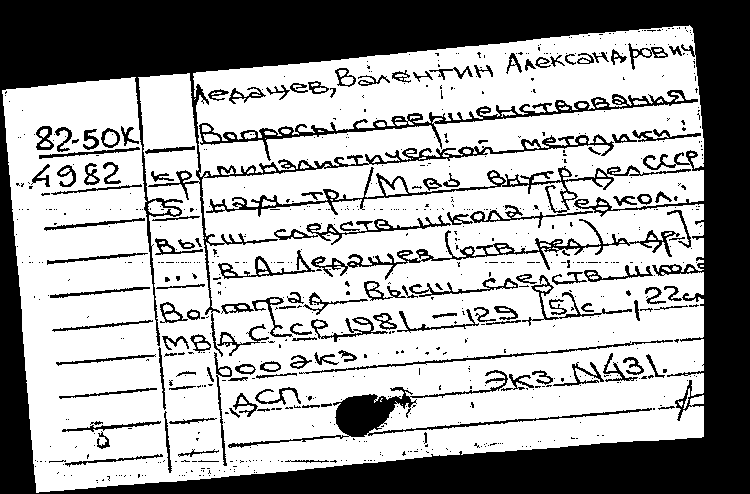 Ледащев, Валентин Александрович
82-50К Вопросы совершенствования
4982 криминалистической методики:
Сб. науч. тр. / М-во внутр. дел СССР
Высш. следств. школа; [Редкол.:
... В.А. Ледащев (отв. ред) и др.] -
Волгоград: Высш. следств. школа
МВД СССР, 1981. - 129, [5] с.; 22 см
- 1000 экз.
ДСП. Экз. N431.
8